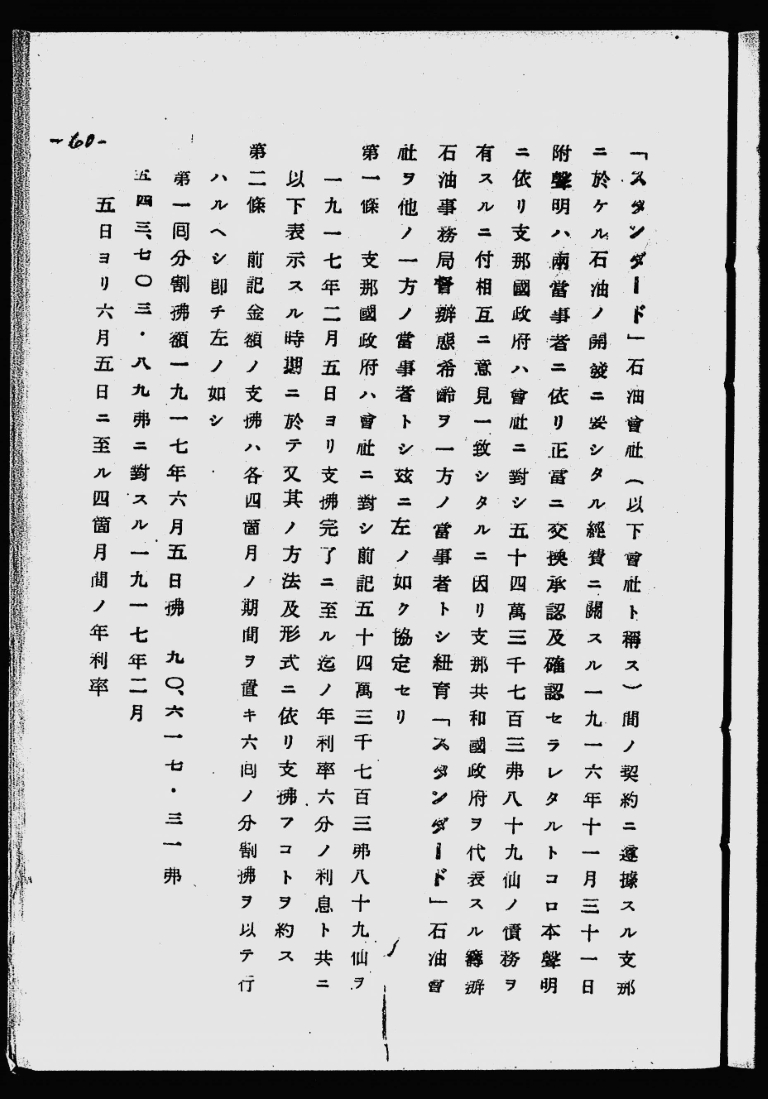 「スタンダード」石油會社(以下會社ト稱ス)間ノ契約ニ遵據スル支那
ニ於ケル石油ノ開發ニ要シタル經費ニ關スル一九一六年十一月三十一日
附聲明ハ兩當事者ニ依リ正當ニ交換承認及確認セラレタルトコロ本聲明
ニ依リ支那國政府ハ會社ニ對シ五十四萬三千七百三弗八十九仙ノ債務ヲ
有スルニ付相互ニ意見一致シタルニ因リ支那共和國政府ヲ代表スル籌辦
石油事務局督辦熊希齡ヲ一方ノ當事者トシ紐育「スタンダード」石油會
社ヲ他ノ一方ノ當事者トシ玆ニ左ノ如ク協定セリ
第一條 支那國政府ハ會社ニ對シ前記五十四萬三千七百三弗八十九仙ヲ
一九一七年二月五日ヨリ支拂完了ニ至ル迄ノ年利率六分ノ利息ト共ニ
以下表示スル時期ニ於テ又其ノ方法及形式ニ依リ支拂フコトヲ約ス
第二條 前記金額ノ支拂ハ各四箇月ノ期間ヲ置キ六回ノ分割拂ヲ以テ行
ハルヘシ卽チ左ノ如シ
第一回分割拂額一九一七年六月五日拂 九〇、六一七・三一弗
五四三、七〇三・八九弗ニ對スル一九一七年二月
五日ヨリ六月五日ニ至ル四箇月間ノ年利率
-60-